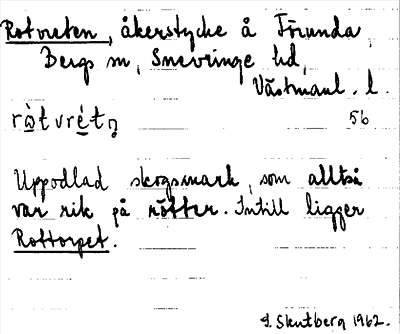 Rotvreten, åkerstycke å Förunda,
Bergs sn, Snevringe hd,
Västmanl. l.
ròtvrét
56
Uppodlad skogsmark, som alltså
var rik på rötter. Intill ligger
Rottorpet.
G. Skutberg 1962.